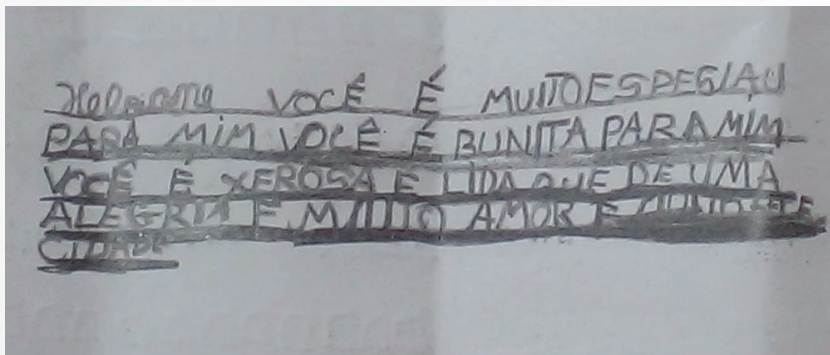 Helaiane VOCÊ É MUITOESPESIAU
PARA MIM VOCÊ É BUNITA PARA MIM
VOCÊ É XEROSA E LIDA QUE DE UMA
ALEGRIA E MUITO AMOR E
CIDADE